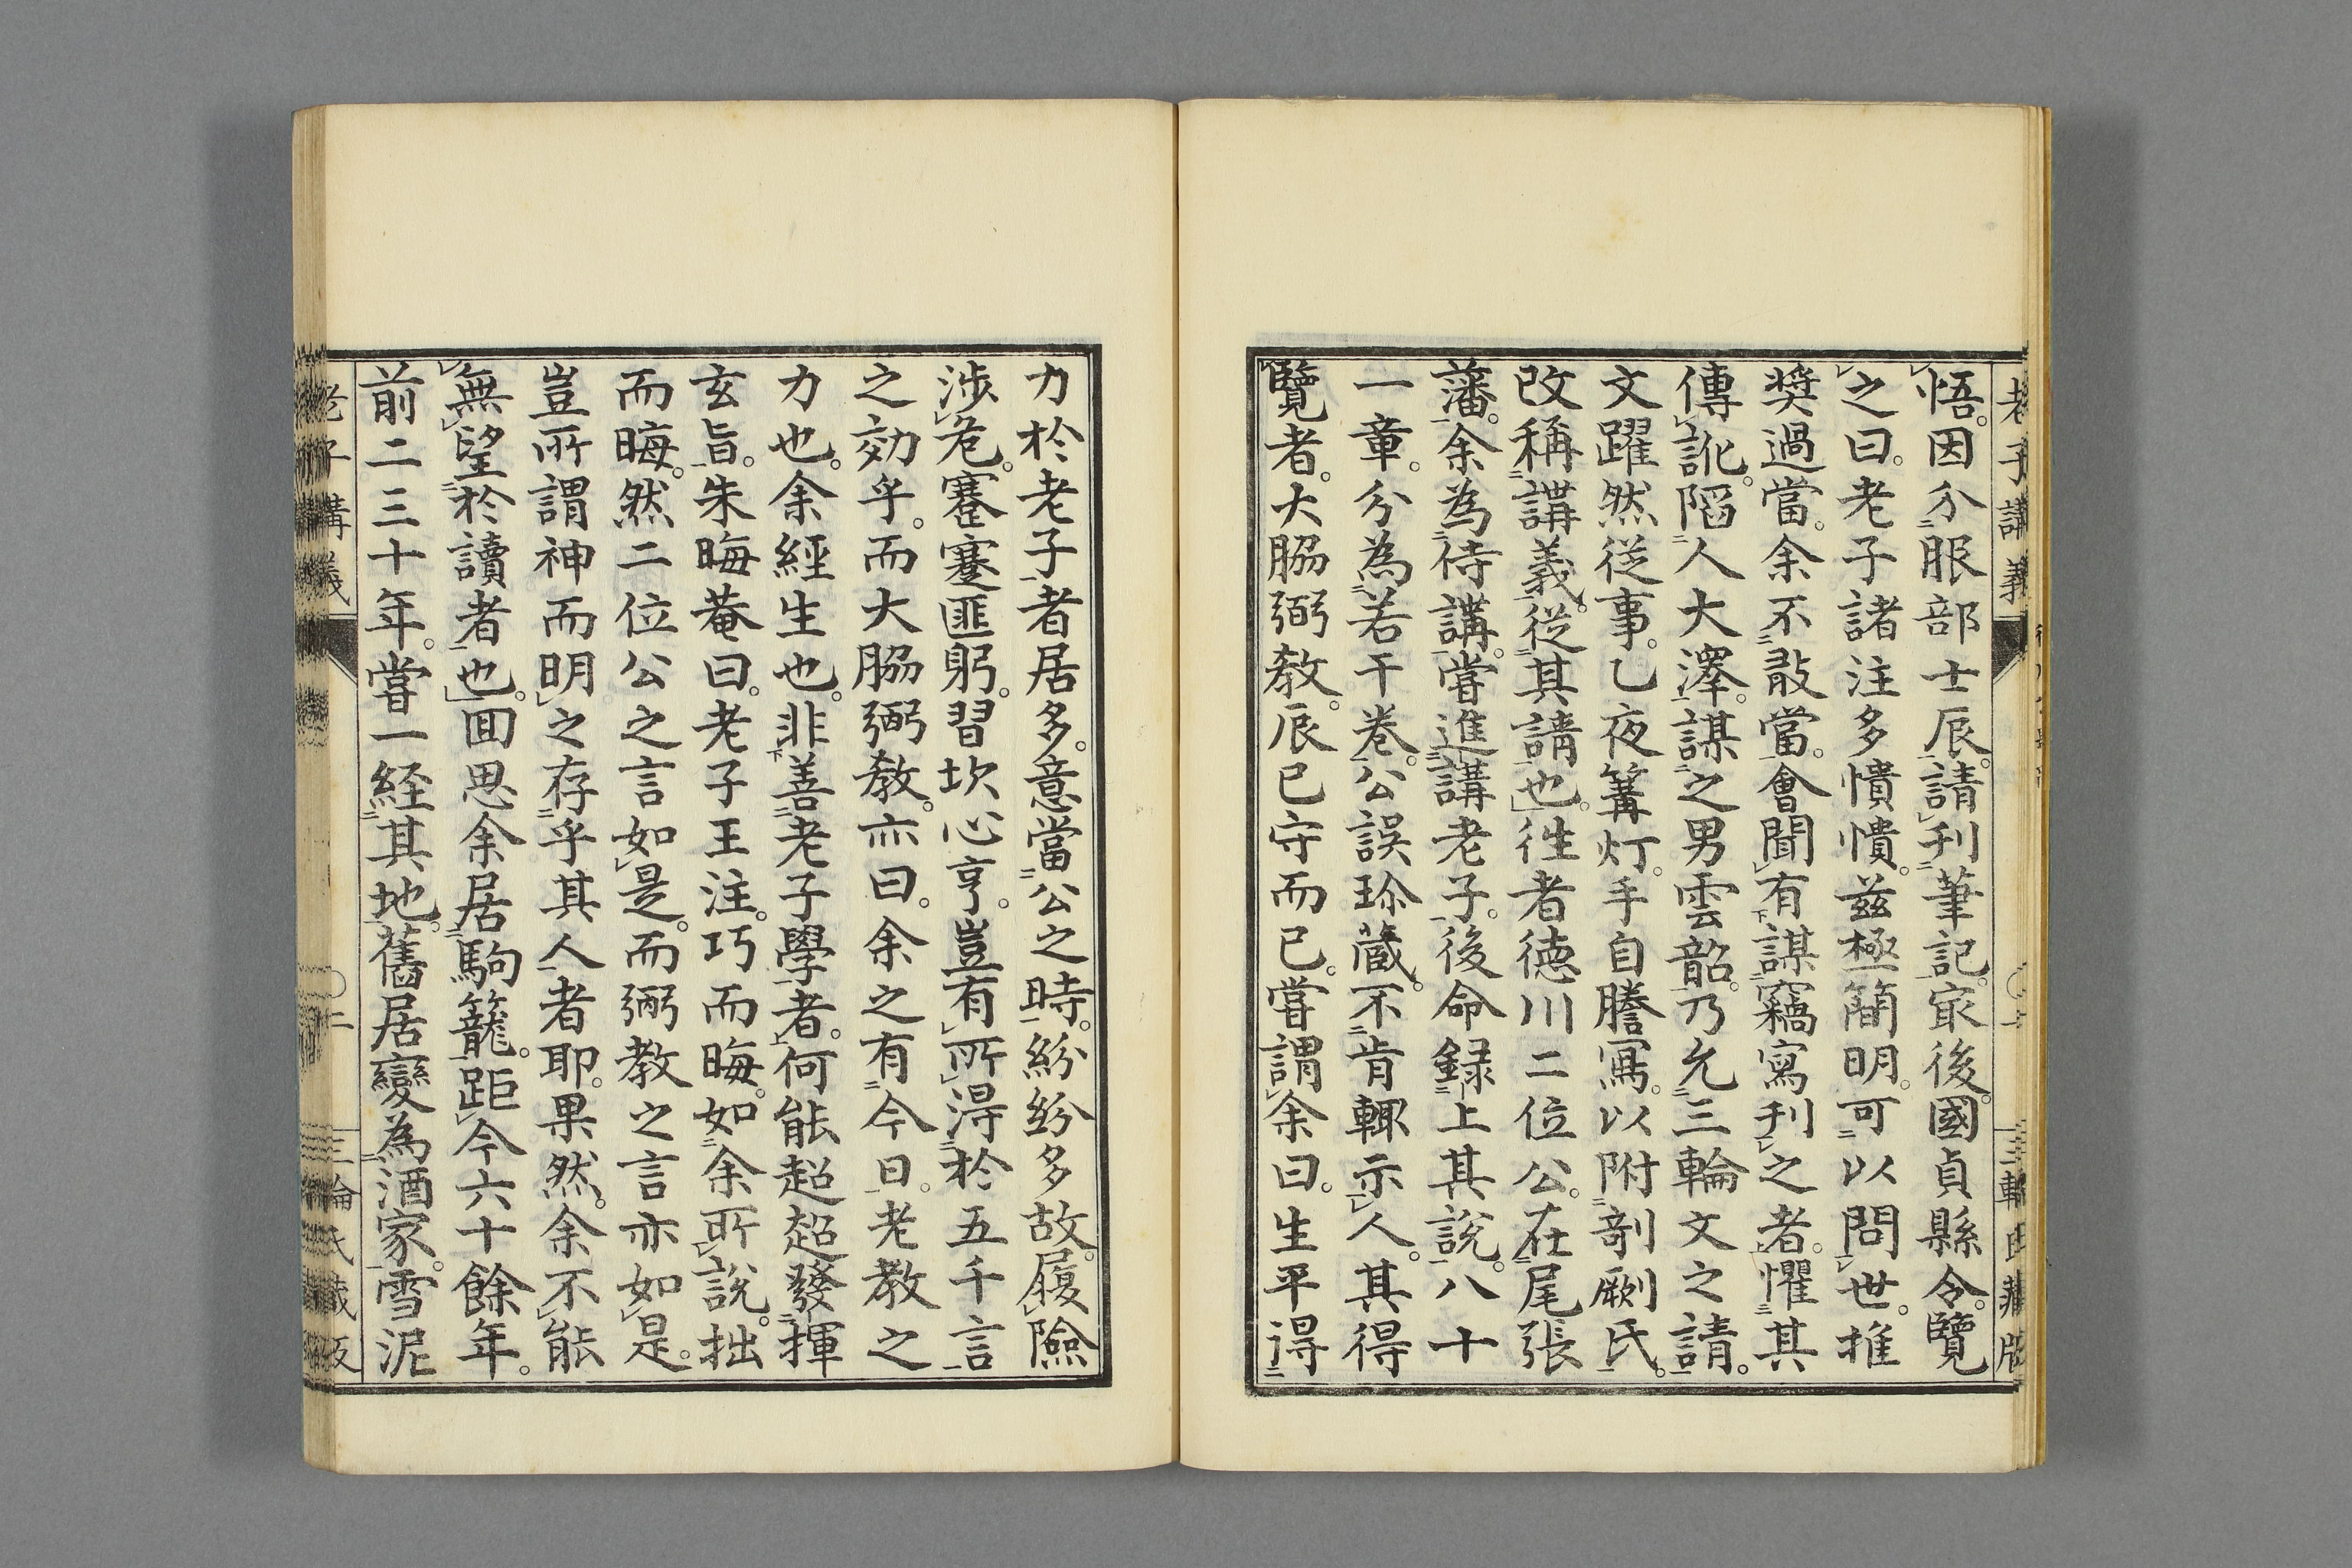 老子講義
三輪氏藏版
悟。因分服部士辰。請刊筆記。㝡後。國貞縣令。覽
之曰。老子諸注多憒憒。茲極簡明。可以問世。推
奬過當。余不敢當。會聞有謀竊寫刊之者。懼其
傳訛陷人大澤。謀之男雲韶。乃允三輪文之請。
文躍然從事。乙夜篝灯。手自謄寫。以附剞劂氏。
改稱講義。從其請也。徃者德川二位公。在尾張
藩。余為侍講。嘗進講老子。後命録上其說。八十
一章。分為若干卷。公誤珍藏。不肯輙示人。其得
覽者。大脇弼教。辰巳守而已。嘗謂余曰。生平得
力於老子者居多。意當公之時。紛紛多故。履險
涉危。蹇蹇匪躬。習坎心亨。豈有所得於五千言
之効乎。而大脇弼教。亦曰。余之有今日。老教之
力也。余經生也。非善老子學者。何能超超發揮
玄旨。朱晦菴曰。老子王注。巧而晦。如余所說。拙
而晦。然二位公之言如是。而弼教之言亦如是。
豈所謂神而明之存乎其人者耶。果然。余不能
無望於讀者也。囬思余居駒籠。距今六十餘年。
前二三十年。嘗一経其地。舊居變為酒家。雪泥
老子講義
二
三輪氏藏版